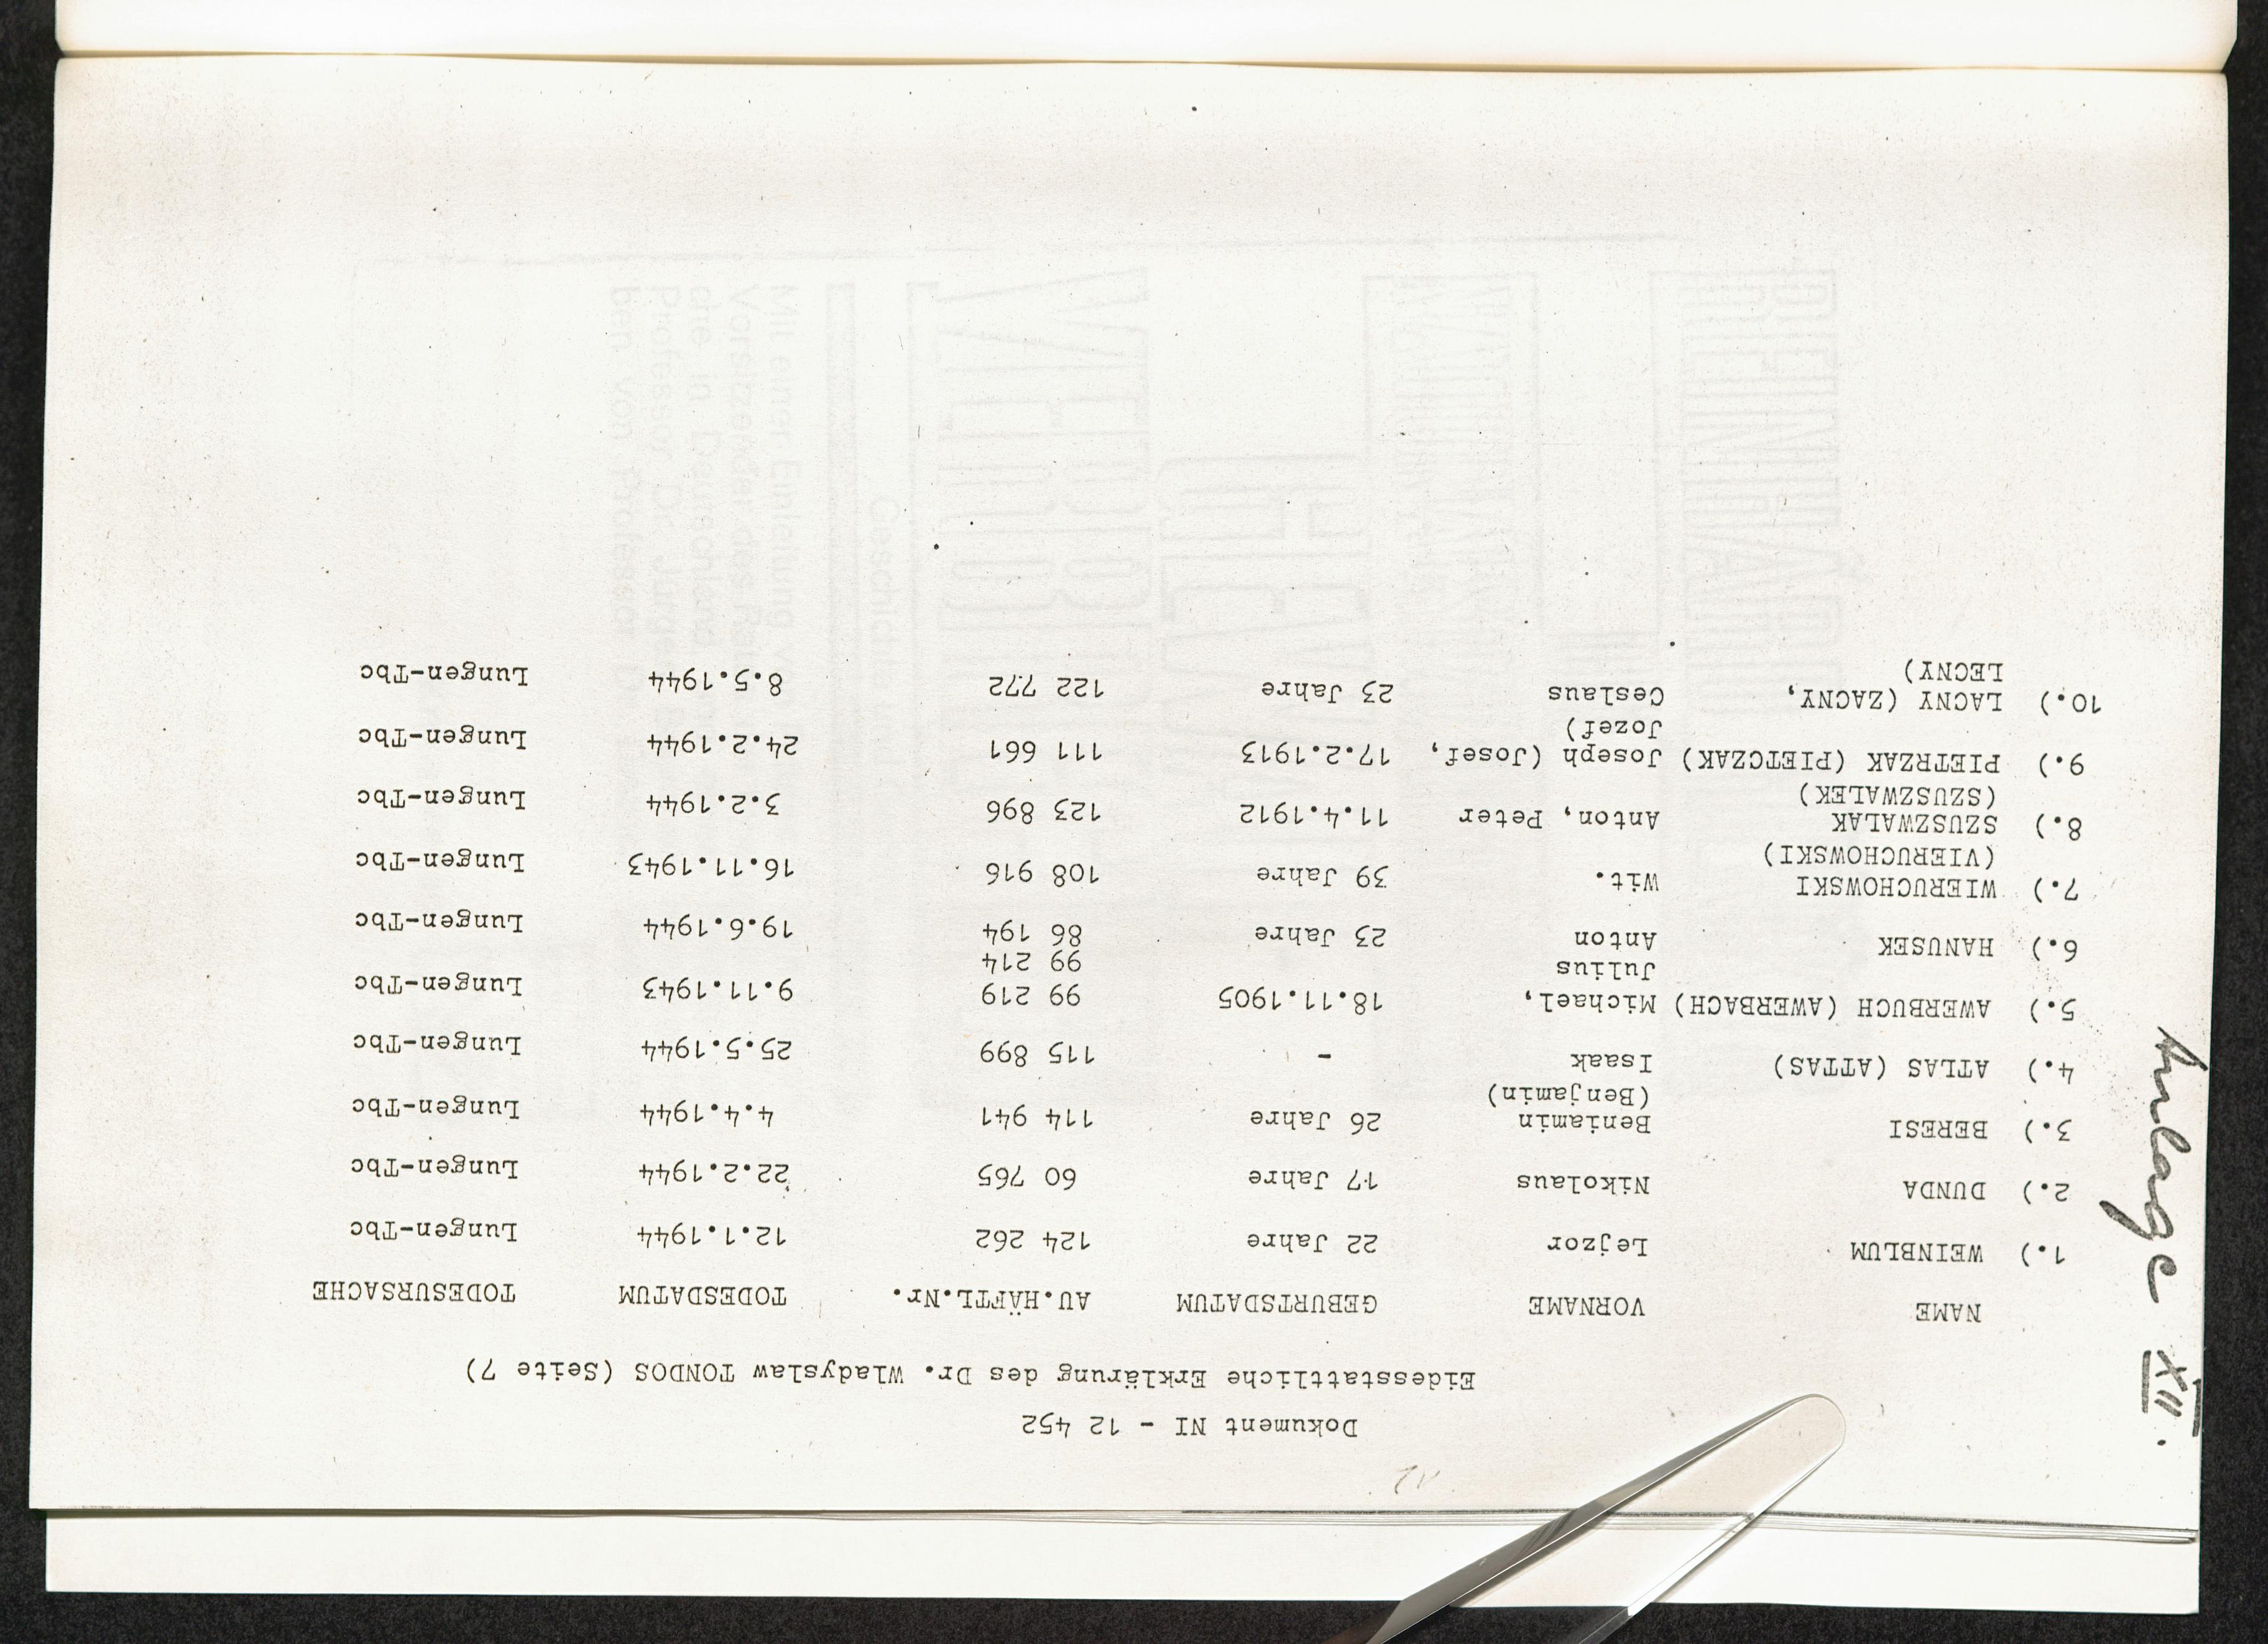 12
Dokument NI - 12 452
Eidesstattliche Erklärung des Dr. Wladyslaw TONDOS (Seite 7)
NAME VORNAME GEBURTSDATUM AU.HÄFTL.Nr. TODESDATUM TODESURSACHE
1.) WEINBLUM Lejzor 22 Jahre 124 262 12.1.1944 Lungen-Tbc
2.) DUNDA Nikolaus 17 Jahre 60 765 22.2.1944 Lungen-Tbc
3.) BERESI Beniamin 26 Jahre 114 941 4.4.1944 Lungen-Tbc
(Benjamin)
4.) ATLAS (ATTAS) Isaak - 115 899 25.5.1944 Lungen-Tbc
5.) AWERBUCH (AWERBACH) Michael, 18.11.1905 99 219 9.11.1943 Lungen-Tbc
Julius 99 214
6.) HANUSEK Anton 23 Jahre 86 194 19.6.1944 Lungen-Tbc
7.) WIERUCHOWSKI Wit. 39 Jahre 108 916 16.11.1943 Lungen-Tbc
(VIERUCHOWSKI)
8.) SZUSZWALAK Anton, Peter 11.4.1912 123 896 3.2.1944 Lungen-Tbc
(SZUSZWALEK)
9.) PIETRZAK (PIETCZAK) Joseph (Josef, 17.2.1913 111 661 24.2.1944 Lungen-Tbc
Jozef)
10.) LACNY (ZACNY, Ceslaus 23 Jahre 122 772 8.5.1944 Lungen-Tbc
LECNY)
Anlage XII.